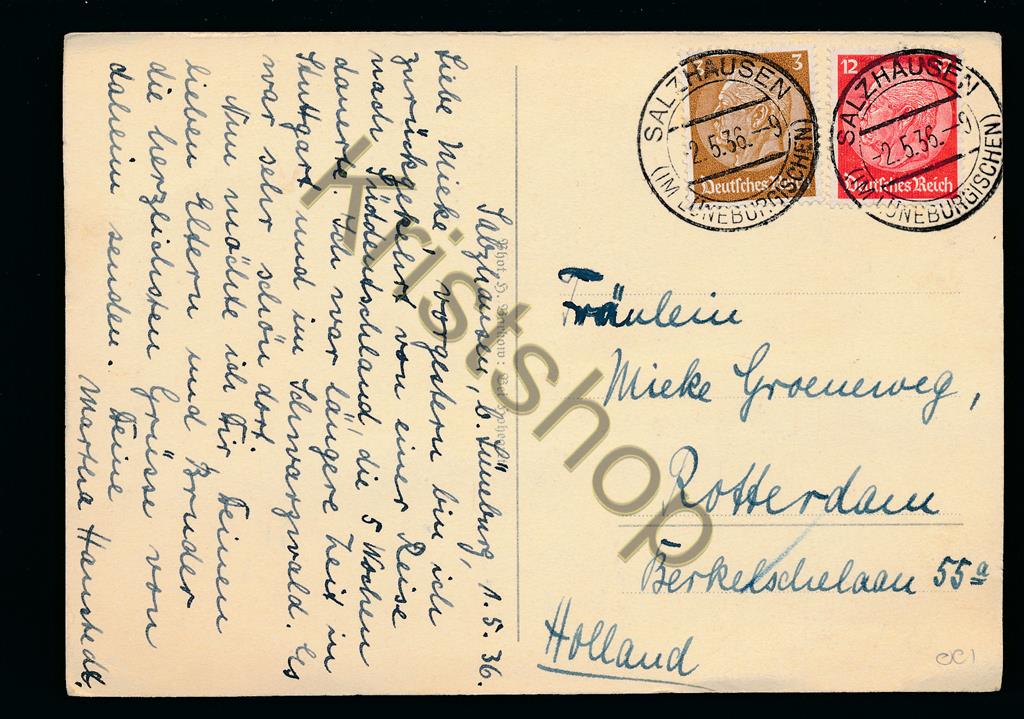 Salzhausen, b. Lüneburg, 1.5.36.
Liebe Mieke, vorgestern bin ich
zurückgekehrt von einer Reise
nach Süddeutschland, die 5 Wochen
dauerte. Ich war längere Zeit in
Stuttgart und im Schwarzwald. Es
war sehr schön dort.
Nun möchte ich Dir, Deinen
lieben Eltern und Bruder
die herzlichsten Grüsse von
daheim senden.
Deine
Martha Hanstedt.
Phot. H.
3
Deutsches Reich
12
12
Deutsches Reich
SALZHAUSEN
2.5.36.-9
(IM LÜNEBURGISCHEN)
SALZHAUSEN
-2.5.36.-9
(IM LÜNEBURGISCHEN)
Fräulein
Mieke Groeneweg,
Rotterdam
Berkelschelaan 55a
Holland
Kristshop